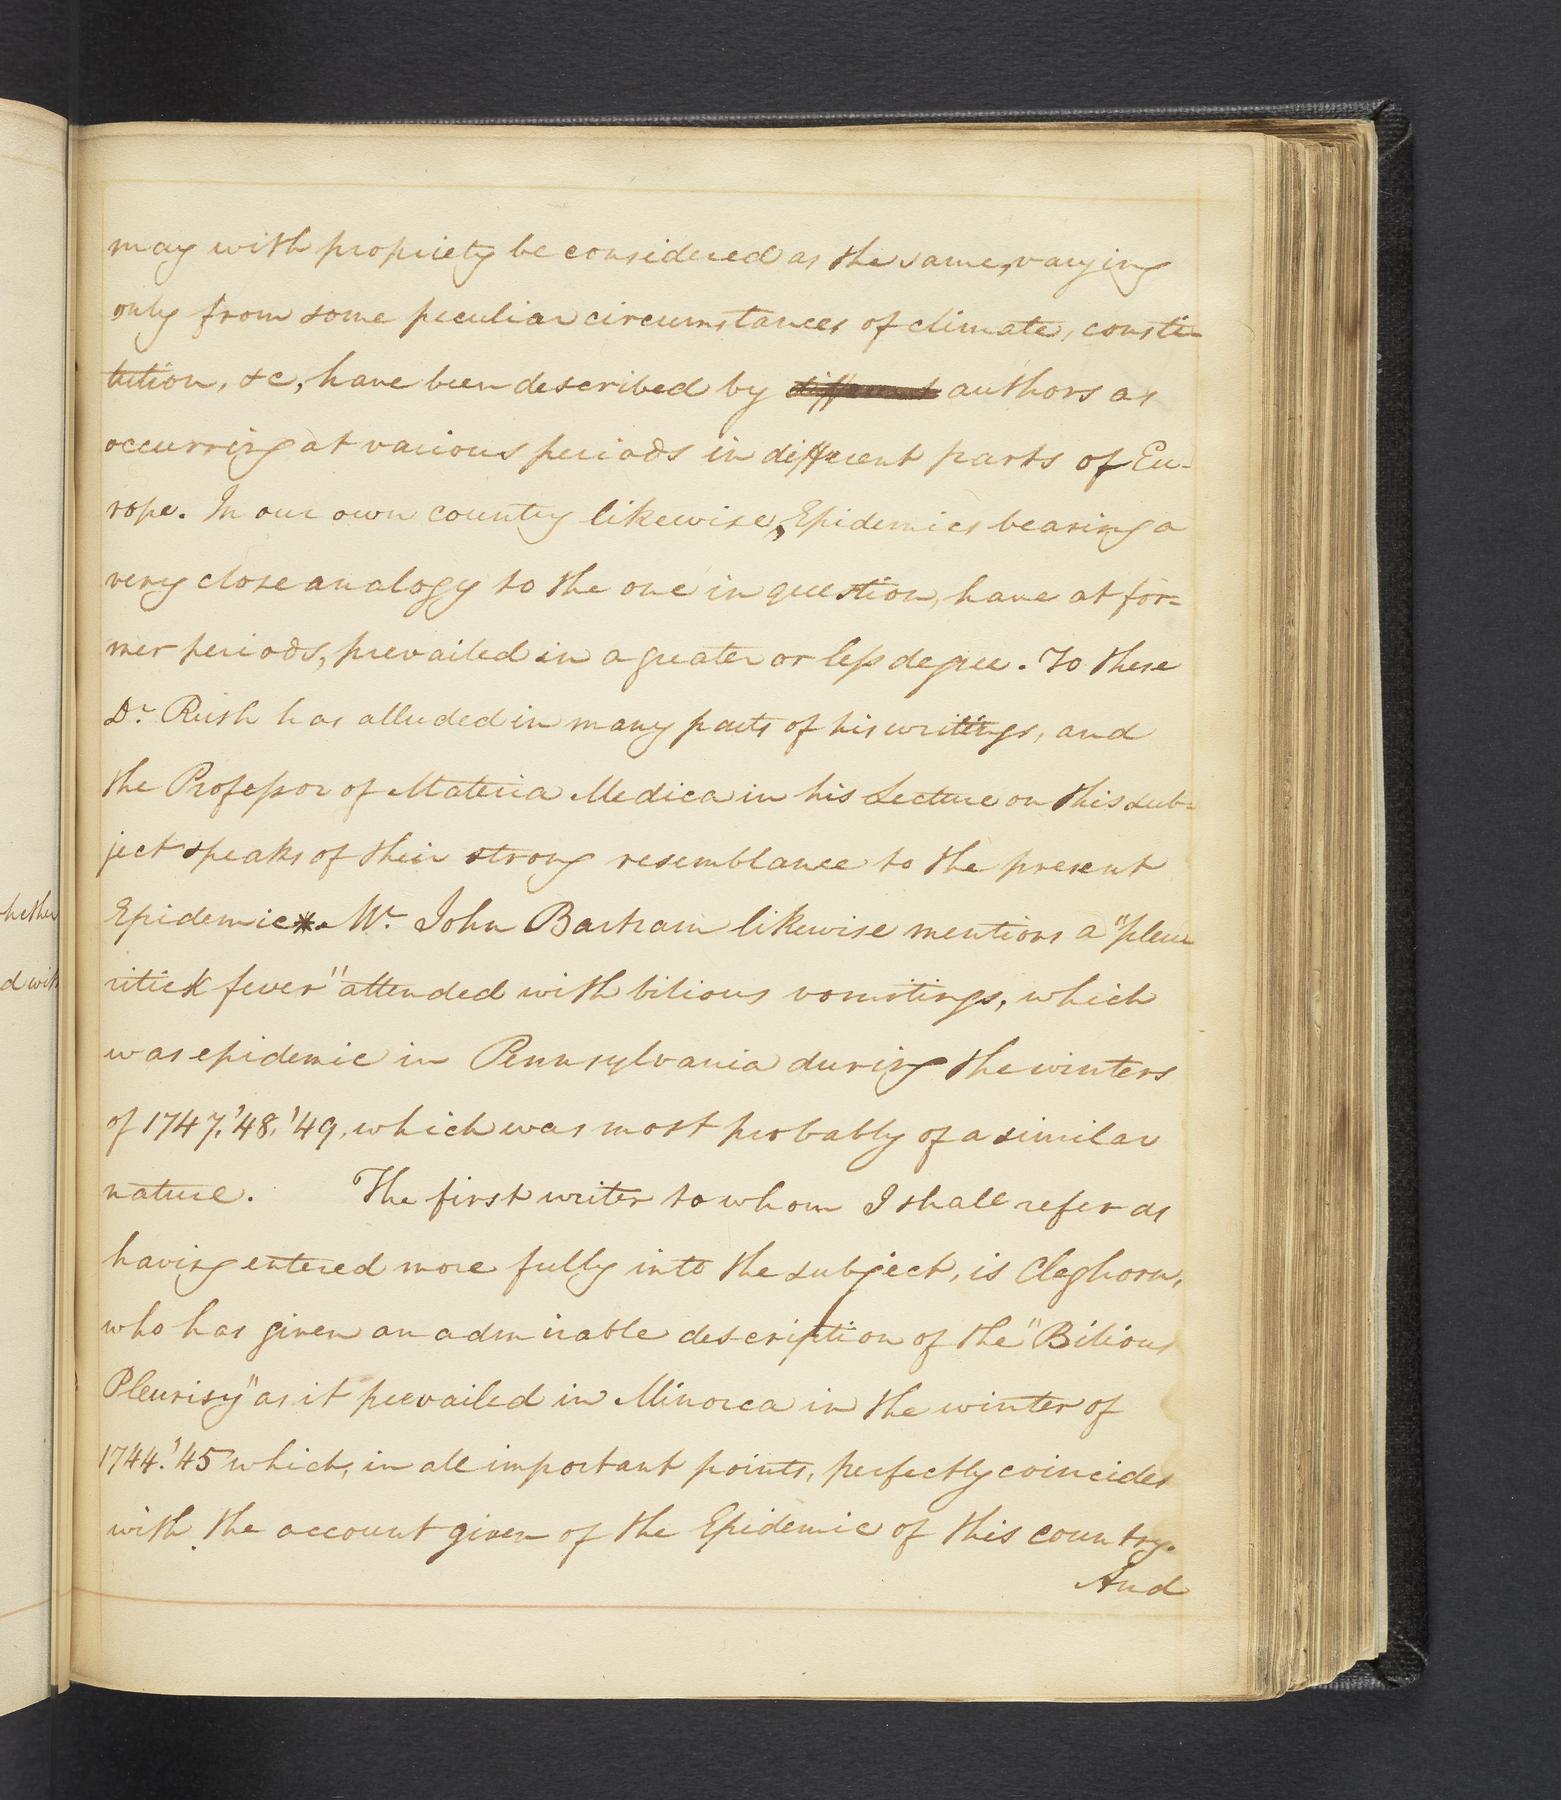 may with propriety be considered as the same, varying
only from some peculiar circumstances of climate, consti-
tution, &c, have been described by different authors as
occurring at various periods in different parts of Eu-
rope. In our own country likewise, Epidemics bearing a
very close analogy to the one in question, have at for=
mer periods, prevailed in a greater or less degree. To these
Dr Rush has alluded in many parts of his writings, and
the Professor of Materia Medica in his Lecture on this sub=
ject speaks of their strong resemblance to the present
Epidemic*. Mr John Bartram likewise mentions a "pleu
ritick fever" attended with bilious vomitings, which
was epidemic in Pennsylvania during the winters
of 1747, '48, '49, which was most probably of a similar
nature. The first writer to whom I shall refer as
having entered more fully into the subject, is Cleghorn,
who has given an admirable description of the "Bilious
Pleurisy" as it prevailed in Minorca in the winter of
1744. '45 which, in all important points, perfectly coincides
with the account given of the Epidemic of this country.
And